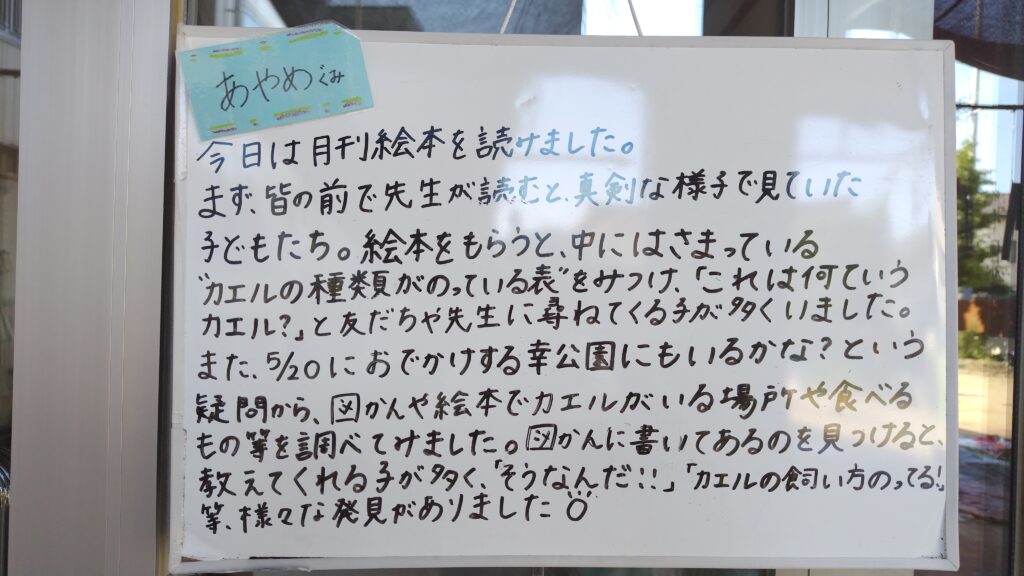 あやめぐみ
今日は月刊絵本を読みました。
まず、皆の前で先生が読むと、真剣な様子で見ていた
子どもたち。絵本をもらうと、中にはさまっている
"カエルの種類がのっている表"をみつけ、「これは何ていう
カエル?」と友だちや先生に尋ねてくる子が多くいました。
また、5/20におでかけする幸公園にもいるかな?という
疑問から、図かんや絵本でカエルがいる場所や食べる
もの等を調べてみました。図かんに書いてあるのを見つけると、
教えてくれる子が多く、「そうなんだ!!」「カエルの飼い方のってる!」
等、様々な発見がありました